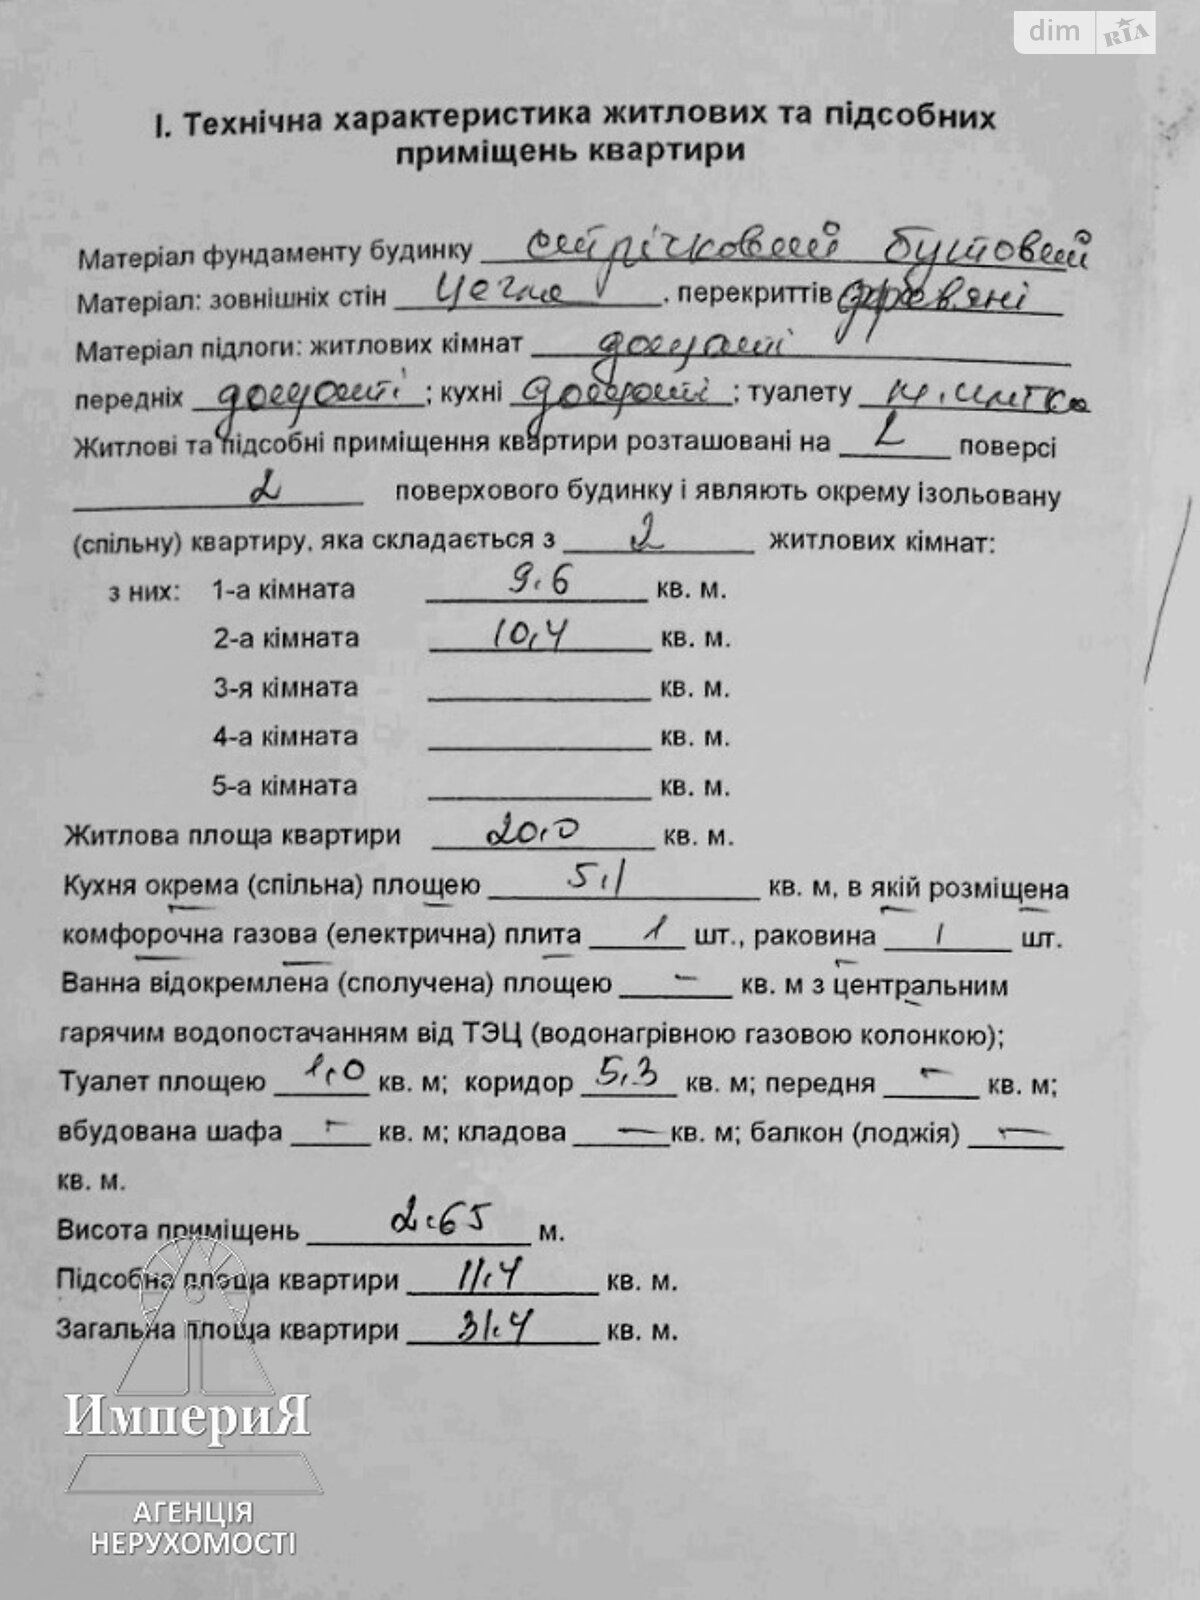 dim RIA
І. Технічна характеристика житлових та підсобних
приміщень квартири
Матеріал фундаменту будинку стрічковий бутовий
Матеріал: зовнішніх стін цегла, перекриттів дерев'яні
Матеріал підлоги: житлових кімнат дощаті
передніх дощаті; кухні дощаті; туалету м. плитка
Житлові та підсобні приміщення квартири розташовані на 2 поверсі
2 поверхового будинку і являють окрему ізольовану
(спільну) квартиру, яка складається з 2 житлових кімнат:
з них: 1-а кімната 9.6 кв. м.
2-а кімната 10,4 кв. м.
3-я кімната кв. м.
4-а кімната кв. м.
5-а кімната кв. м.
Житлова площа квартири 20,0 кв. м.
Кухня окрема (спільна) площею 5,1 кв. м, в якій розміщена
комфорочна газова (електрична) плита 1 шт., раковина 1 шт.
Ванна відокремлена (сполучена) площею - кв. м з центральним
гарячим водопостачанням від ТЭЦ (водонагрівною газовою колонкою);
Туалет площею 1,0 кв. м; коридор 5,3 кв. м; передня - кв. м;
вбудована шафа - кв. м; кладова - кв. м; балкон (лоджія) -
кв. м.
Висота приміщень 2.65 м.
Підсобна площа квартири 11,4 кв. м.
Загальна площа квартири 31,4 кв. м.
ИмпериЯ
АГЕНЦІЯ
НЕРУХОМОСТІ